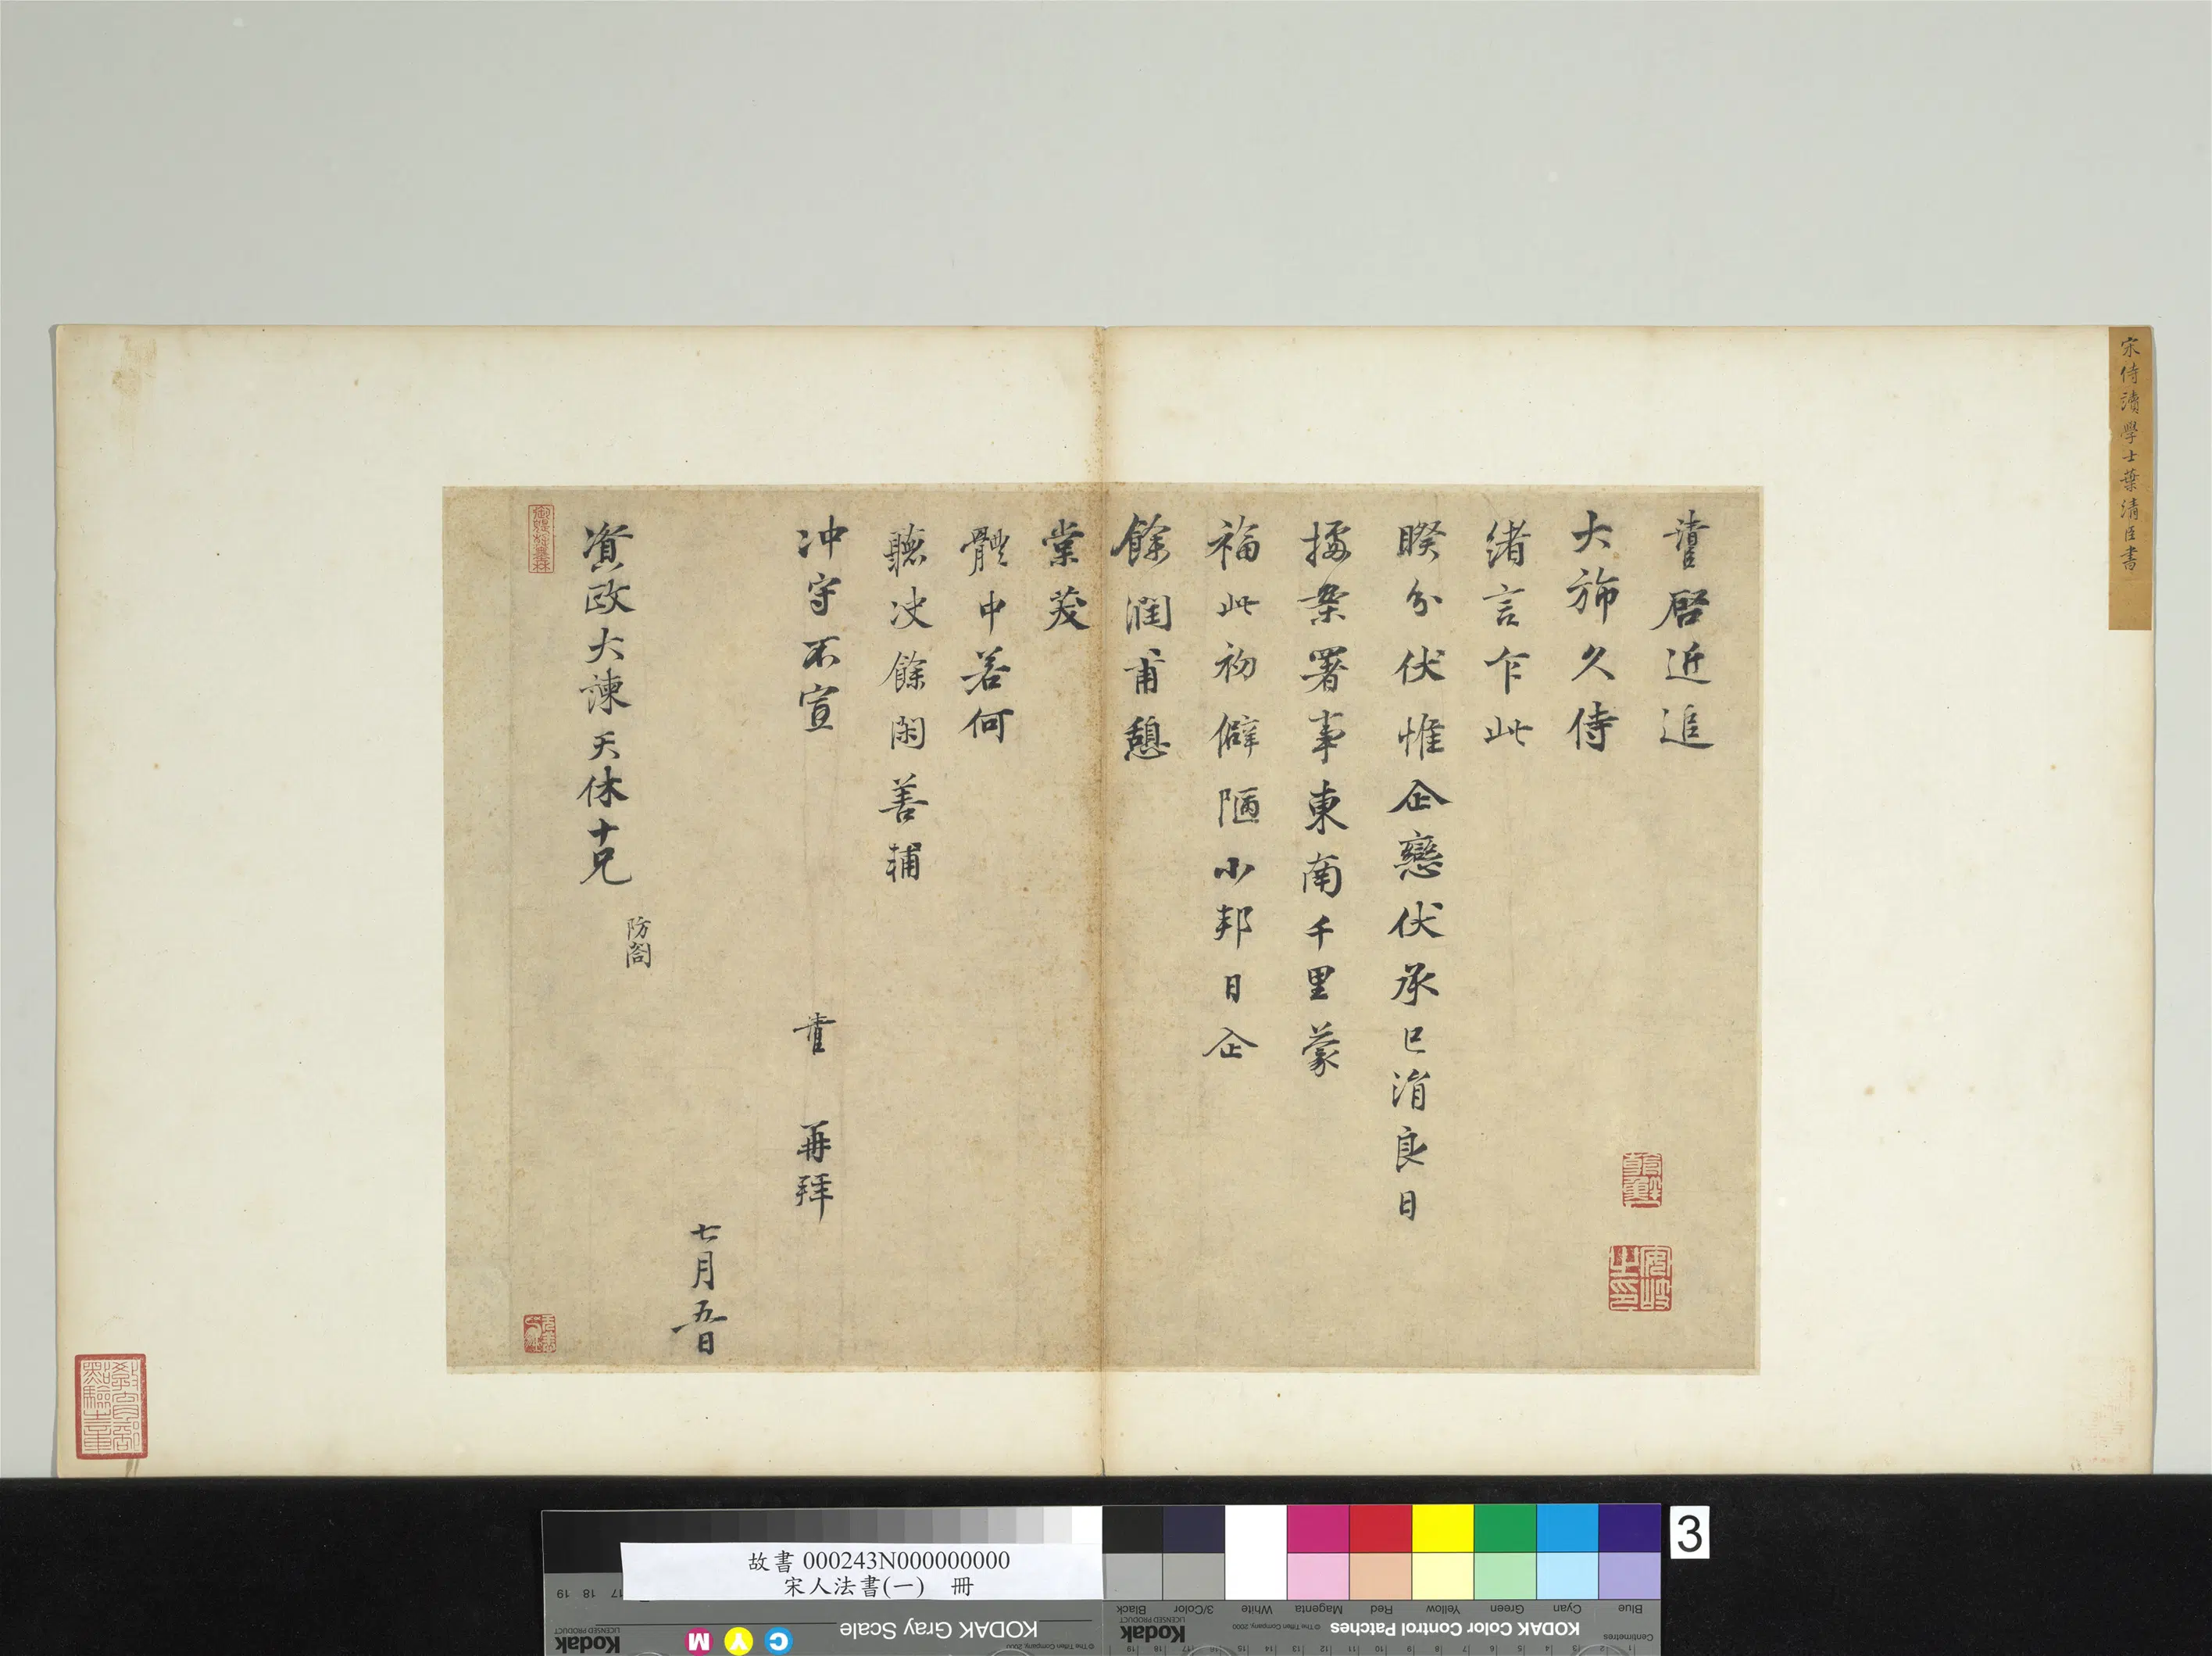 宋侍讀學士葉清臣書
清臣啓近追
大斾久侍
緒言乍此
睽分伏惟企戀伏承已涓良日
據案署事東南千里蒙
福此初僻陋小邦日企
餘潤甫憩
棠茇
體中若何
聽決餘閑善輔
冲守不宣
清臣 再拜
七月五日
資政大諫天休十兄
防閤
教育部點驗之章
故書 000243N000000000
宋人法書(一) 冊
3
KODAK Gray Scale
Kodak
LICENSED PRODUCT
C
Y
M
19 18 17
© The Tiffen Company, 2000
KODAK Color Control Patches
Kodak
LICENSED PRODUCT
© The Tiffen Company, 2000
Centimetres
Blue
Cyan
Green
Yellow
Red
Magenta
White
3/Color
Black